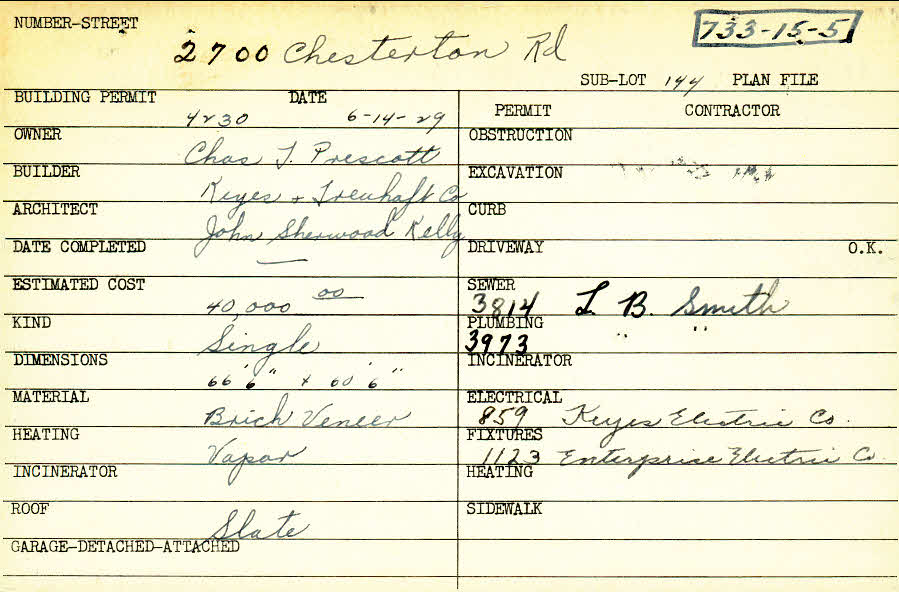 NUMBER-STREET
2700 Chesterton Rd
733-15-5
SUB-LOT 144 PLAN FILE
BUILDING PERMIT DATE
4230 6-14-29
PERMIT CONTRACTOR
OWNER
Chas T. Prescott
OBSTRUCTION
BUILDER
Keyes + Treuhaft Co
EXCAVATION
ARCHITECT
John Sherwood Kelly
CURB
DATE COMPLETED
—
DRIVEWAY O.K.
ESTIMATED COST
40,000 00
SEWER
3814 L. B. Smith
KIND
Single
PLUMBING
3973 " "
DIMENSIONS
66'6" x 60'6"
INCINERATOR
MATERIAL
Brick Veneer
ELECTRICAL
859 Keyes Electric Co.
HEATING
Vapor
FIXTURES
1123 Enterprise Electric Co.
INCINERATOR
HEATING
ROOF
Slate
SIDEWALK
GARAGE-DETACHED-ATTACHED